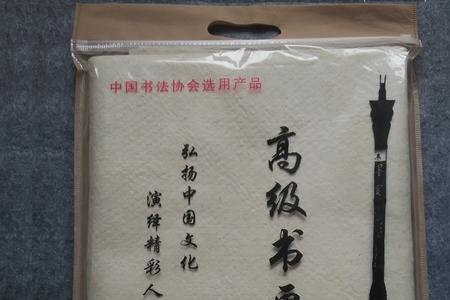 中国书法协会选用产品
高级书
弘扬中国文化
演绎精彩人